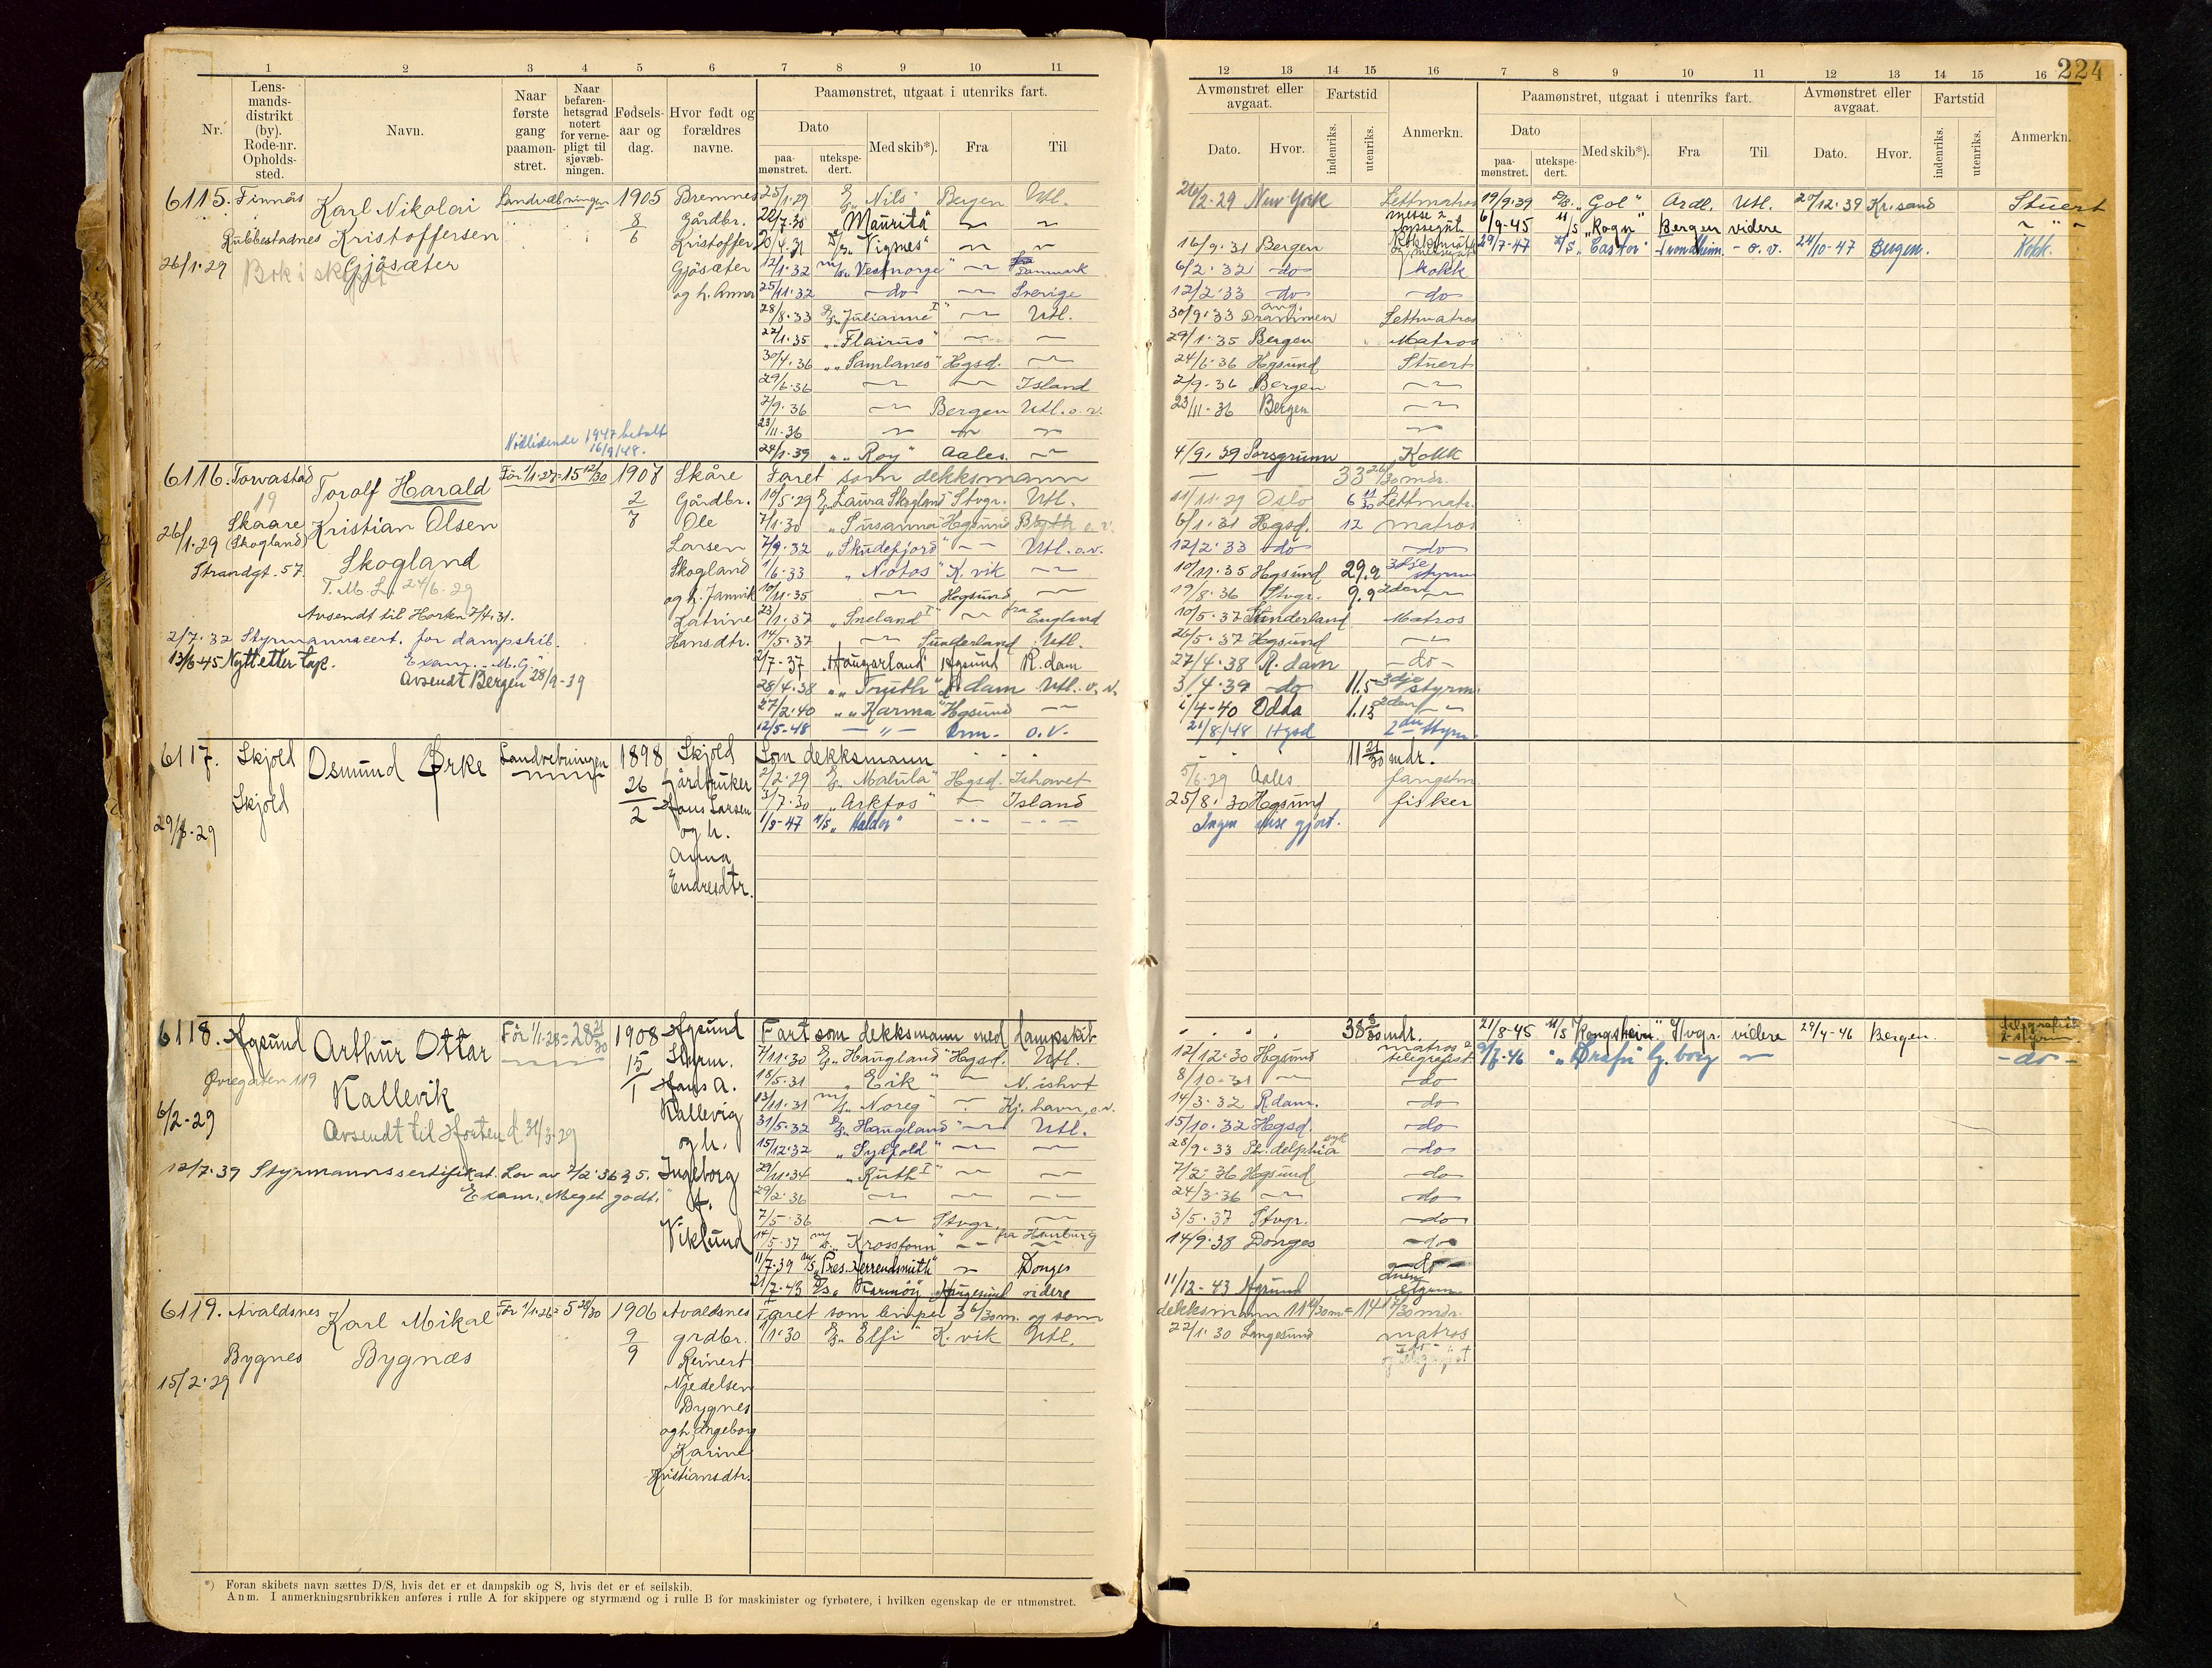 224
1 2 3 4 5 6 7 8 9 10 11
Nr. Lensmandsdistrikt (by). Rode-nr. Opholdssted. Navn. Naar første gang paamønstret. Naar befarenhetsgrad notert for vernepligt til sjøvæbningen. Fødselsaar og dag. Hvor født og forældres navne. Paamønstret, utgaat i utenriks fart.
Dato Med skib*). Fra Til
paamønstret. utekspedert.
12 13 14 15 16 7 8 9 10 11 12 13 14 15 16
Avmønstret eller avgaat. Fartstid Anmerkn. Paamønstret, utgaat i utenriks fart. Avmønstret eller avgaat. Fartstid Anmerkn.
Dato. Hvor. indenriks. utenriks. Dato paamønstret. utekspedert. Med skib*). Fra Til Dato. Hvor. indenriks. utenriks.
6115. Finnås Karl Nikolai Landvæbningen 1905 Bremnes 25/1.29 "Nils" Bergen Utl.
Rubbestadnes Kristoffersen 8/6 Gårdbr. 22/7.30 "Maurita"
26/1.29 Gjøsæter Kristoffer 20/4.31 "Vignes"
Bok i
Gjøsæter 12/1.32 "Vestnorge" Danmark
og h. Anna 25/11.32 do Sverige
28/8.33 "Julianne" Utl.
22/1.35 "Flairus"
30/4.36 "Samlanes" Hgsd.
29/6.36 Island
7/9.36 Bergen Utl. o. v.
23/11.36
Nødlidende 1947 betalt
16/9/48.
24/1.39 "Roy" Aales.
26/2.29 New York Lettmatros 19/9.39 "Gol" Ardl. Utl. 27/12.39 Kr.sand Stuert
6/9-45 "Rogn" Bergen videre
16/9.31 Bergen 29/7-47 "Castor" Trondheim - o. v. 24/10-47 Bergen. Kokk.
6/2.32 do kokk
12/2.33 do do
30/9.33 Drammen Lettmatros
29/1.35 Bergen Matros
24/6.36 Hgsund Stuert
7/9.36 Bergen
23/11.36 Bergen
4/9.39 Porsgrunn Kokk
6116. Torvastad Torolf Harald Før 1/1-27=15 12/30 1907 Skåre Faret som dekksmann
19 Kristian Olsen 2/8 Gårdbr. 10/5.29 "Laura Skogland" Stvgr. Utl.
Skaare Skogland Ole 7/1.30 "Susanna" Hgsund
26/1.29 (Skogland) Larsen 7/9.32 "Skudefjord" Utl. o.v.
Strandgt. 57. Skogland 1/6.33 "Notos" K. vik
T. M. L. 24/6.29 og h. Jannik 10/11.35 Hgsund
Avsendt til Horten 7/4.31. Katrine 23/1.37 "Sneland I" fra England
2/7.32 Styrmannscert. for dampskib. Hansdtr. 14/5.37 Sunderland Utl.
13/6-45 Nytt etter tap. Exam. "M. G." 2/7-37 "Haugarland" Hgsund R.dam
Avsendt Bergen 28/9-39 28/4.38 "Truth" R.dam Utl. o. v.
27/2.40 "Karma" Hgsund
12/5-48 o. v.
33 26/30 mdr.
11/11.29 Oslo 6 11/30 Lettmatr.
6/1.31 Hgsd. 12 matros
12/2.33 do do
10/11.35 Hgsund 29.9 3dje styrm
19/8.36 Stvgr. 9.9 2den
10/5.37 Sunderland Matros
26/5.37 Hgsund
27/4.38 R. dam - do -
3/4.39 do 11.5 3dje styrm.
1/4-40 Odda 1.13 2den
21/8/48 Hgsd 2den styrm.
6117. Skjold Osmund Ørke Landvebningen 1898 Skjold Som dekksmann
Skjold 26/2 Gårdbruker 2/2.29 "Matula" Hgsd. Ishavet
29/1-29 Hans Larsen 3/7.30 "Arkfos" Island
og h. 1/9-47 "Haldor"
Anna
Endresdtr.
11 21/30 mdr.
5/6.29 Aales fangstm
25/8.30 Hgsund fisker
Ingen reise gjort.
6118. Hgsund Arthur Ottar Før 1/1-28=28 21/30 1908 Hgsund Fart som dekksmann med dampskib
Øvregaten 119 Kallevik 15/1 Styrm. 7/11.30 "Haugland" Hgsd. Utl.
6/2-29 Hans A. 18/5.31 "Eik" N. ishvt
Kallevig 13/11.31 "Noreg" Kj. havn, o.v.
Avsendt til Horten d 31/3-29 og h. 31/5.32 "Haugland" Utl.
15/12.32 "Sydfold"
12/7.39 Styrmannssertifikat. Lov av 7/2.36 § 5. Ingeborg 29/11.34 "Ruth I"
Exam. "Meget godt." f. 29/2.36
7/5-36 Stvgr.
Viklund 14/5.37 "Krossfonn" fra Hamburg
11/7.39 "Pres. Herrendsmith" Donges
21/7-43 "Karmøy" Haugesund videre
38 8/30 mdr. 21/8-45 "Kongsheim" Stvgr. videre 29/4-46 Bergen. telegrafist 2 styrm.
12/12.30 Hgsund matros telegrafist 9/7-46 G. borg - do -
8/10-31 do
14/3.32 R.dam. do
15/10.32 Hgsd. do
28/9.33 do
7/2.36 Hgsund do
24/3.36 do
3/5.37 Stvgr. do
14/9.38 Donges do
11/12-43 Hgsund styrm.
6119. Avaldsnes Karl Mikal Før 1/1.26=5 28/30 1906 Avaldsnes Faret som lemper 3 6/30 m. og som
Bygnes Bygnæs 9/9 grdbr. 1/1.30 "Elfi" K. vik Utl.
15/2.29 Reinert
Njedelsen
Bygnes
og h. Ingeborg
Karine
Kristiansdtr.
dekksmann 11 = 14 mdr.
22/1.30 Langesund matros
*) Foran skibets navn sættes D/S, hvis det er et dampskib og S, hvis det er et seilskib.
Anm. I anmerkningsrubrikken anføres i rulle A for skippere og styrmænd og i rulle B for maskinister og fyrbøtere, i hvilken egenskap de er utmønstret.